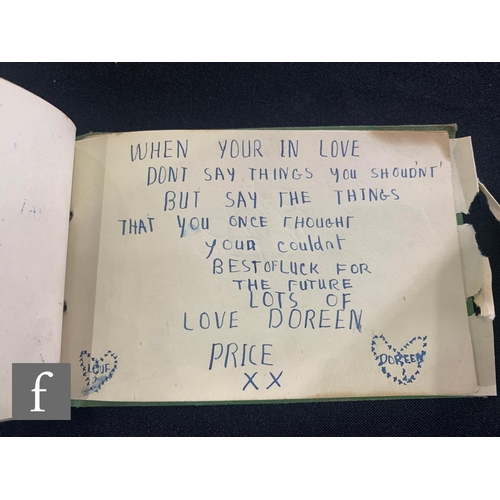 WHEN YOUR IN LOVE
DONT SAY THINGS YOU SHOUDN'T'
BUT SAY THE THINGS
THAT YOU ONCE THOUGHT
YOUR COULDNT
BEST OF LUCK FOR
THE FUTURE
LOTS OF
LOVE DOREEN
PRICE
X X
LOVE
DOREEN
f